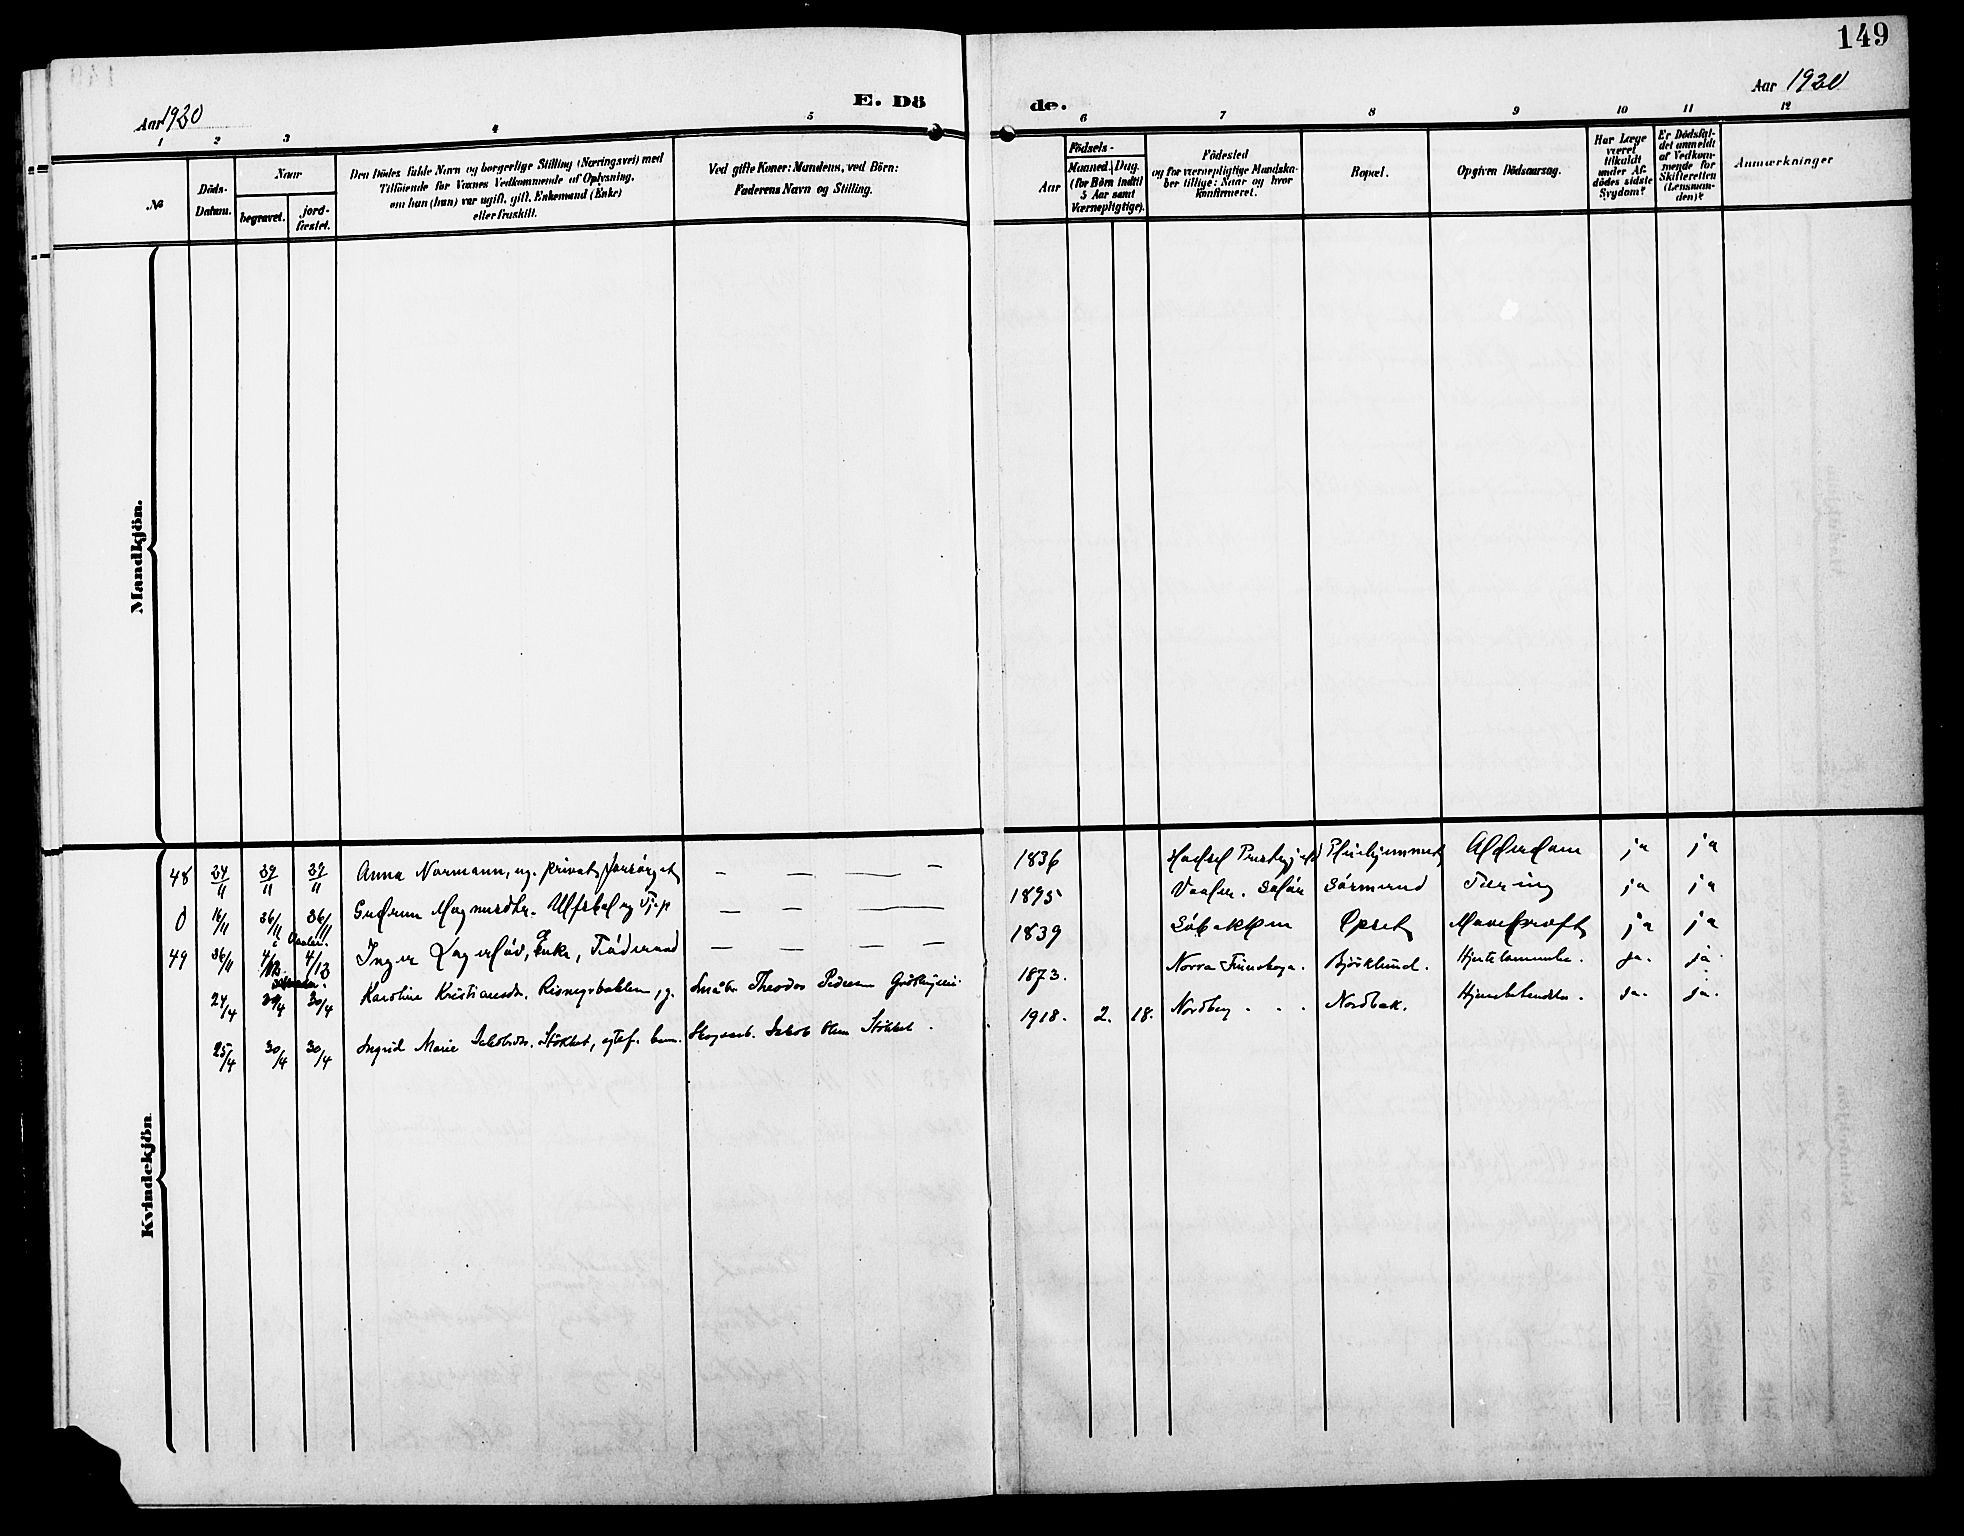 149
Aar 1920
E. Dö
de.
Aar 1920
1 2 3 4 5 6 7 8 9 10 11 12
№
Döds-
Datum.
Naar
begravet.
jord-
fæstet.
Den Dödes fulde Navn og borgerlige Stilling (Næringsvei) med
Tilföiende for Voxnes Vedkommende af Oplysning,
om han (hun) var ugift, gift, Enkemand (Enke)
eller fraskilt.
Ved gifte Koner: Mandens, ved Börn:
Faderens Navn og Stilling.
Aar
Födsels-
Maaned. Dag.
(for Börn indtil
5 Aar samt
Værnepligtige).
Födested
og for værnepligtige Mandska-
ber tillige: Naar og hvor
konfirmeret.
Bopæl.
Opgiven Dödsaarsag.
Har Læge
været
tilkaldt
under Af-
dödes sidste
Sygdom?
Er Dödsfal-
det anmeldt
af Vedkom-
mende for
Skifteretten
(Lensman-
den)?
Anmærkninger
Mandkjön.
Kvindekjön
48 24/11 29/11 29/11 Anna Normann, ug. privat forsørget — — — — 1836 Prestegjeld Pleiehjemmet Alderdom ja ja
0 16/11 26/11 26/11 Gudrun Magnusdtr. — — — 1895 Vaaler. Solør Sørmund Tæring ja ja
49 26/11 4/12 4/12 Inger Lagerløv, Enke, — — — — 1839 Søbakken Opset Mavekræft ja ja
24/4 30/4 30/4 Karoline Kristiansdr. g. Småbr. Theodor Pedersen 1873. Norra Finnskoga. Bjørklund. Hjertelammelse. ja. ja.
25/4 30/4 30/4 Ingrid Marie Jakobsdr. Støkket, egtef. barn. Skogsarb. Jakob Olsen Støkket. 1918. 2. 18. Nordberg . . . Nordbak. ja. ja.